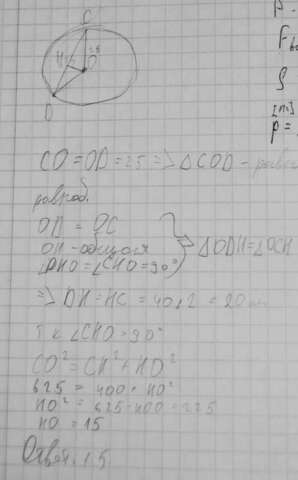 C
H
25
O
D
CO = OD = 25 => △COD - равно
OD = OC
OH - общая
∠DHO = ∠CHO = 90°
△ODH = △OCH
=> DH = HC = 40:2 = 20
т.к ∠CHO = 90°
CO² = CH² + HO²
625 = 400 + HO²
HO² = 625 - 400 = 225
HO = 15
Ответ: 15
[m]
p =